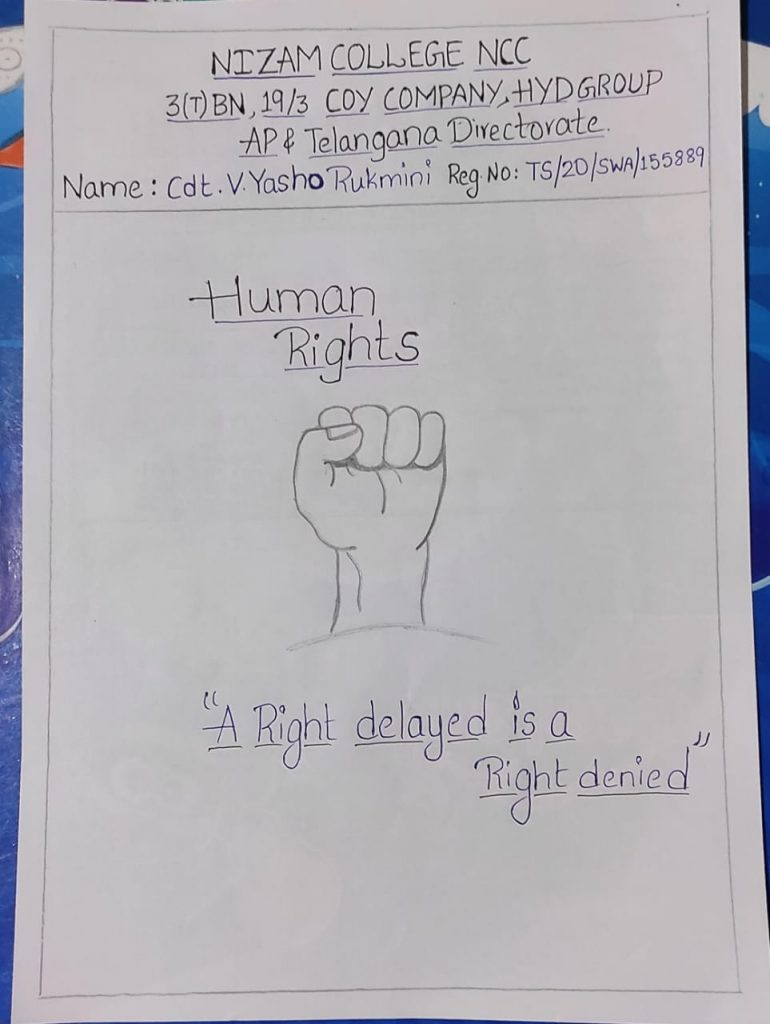 NIZAM COLLEGE NCC
3(T)BN, 19/3 COY COMPANY, HYD GROUP
AP & Telangana Directorate.
Name: Cdt. V. Yasho Rukmini Reg. No: TS/20/SWA/155889
Human
Rights
"A Right delayed is a
Right denied"